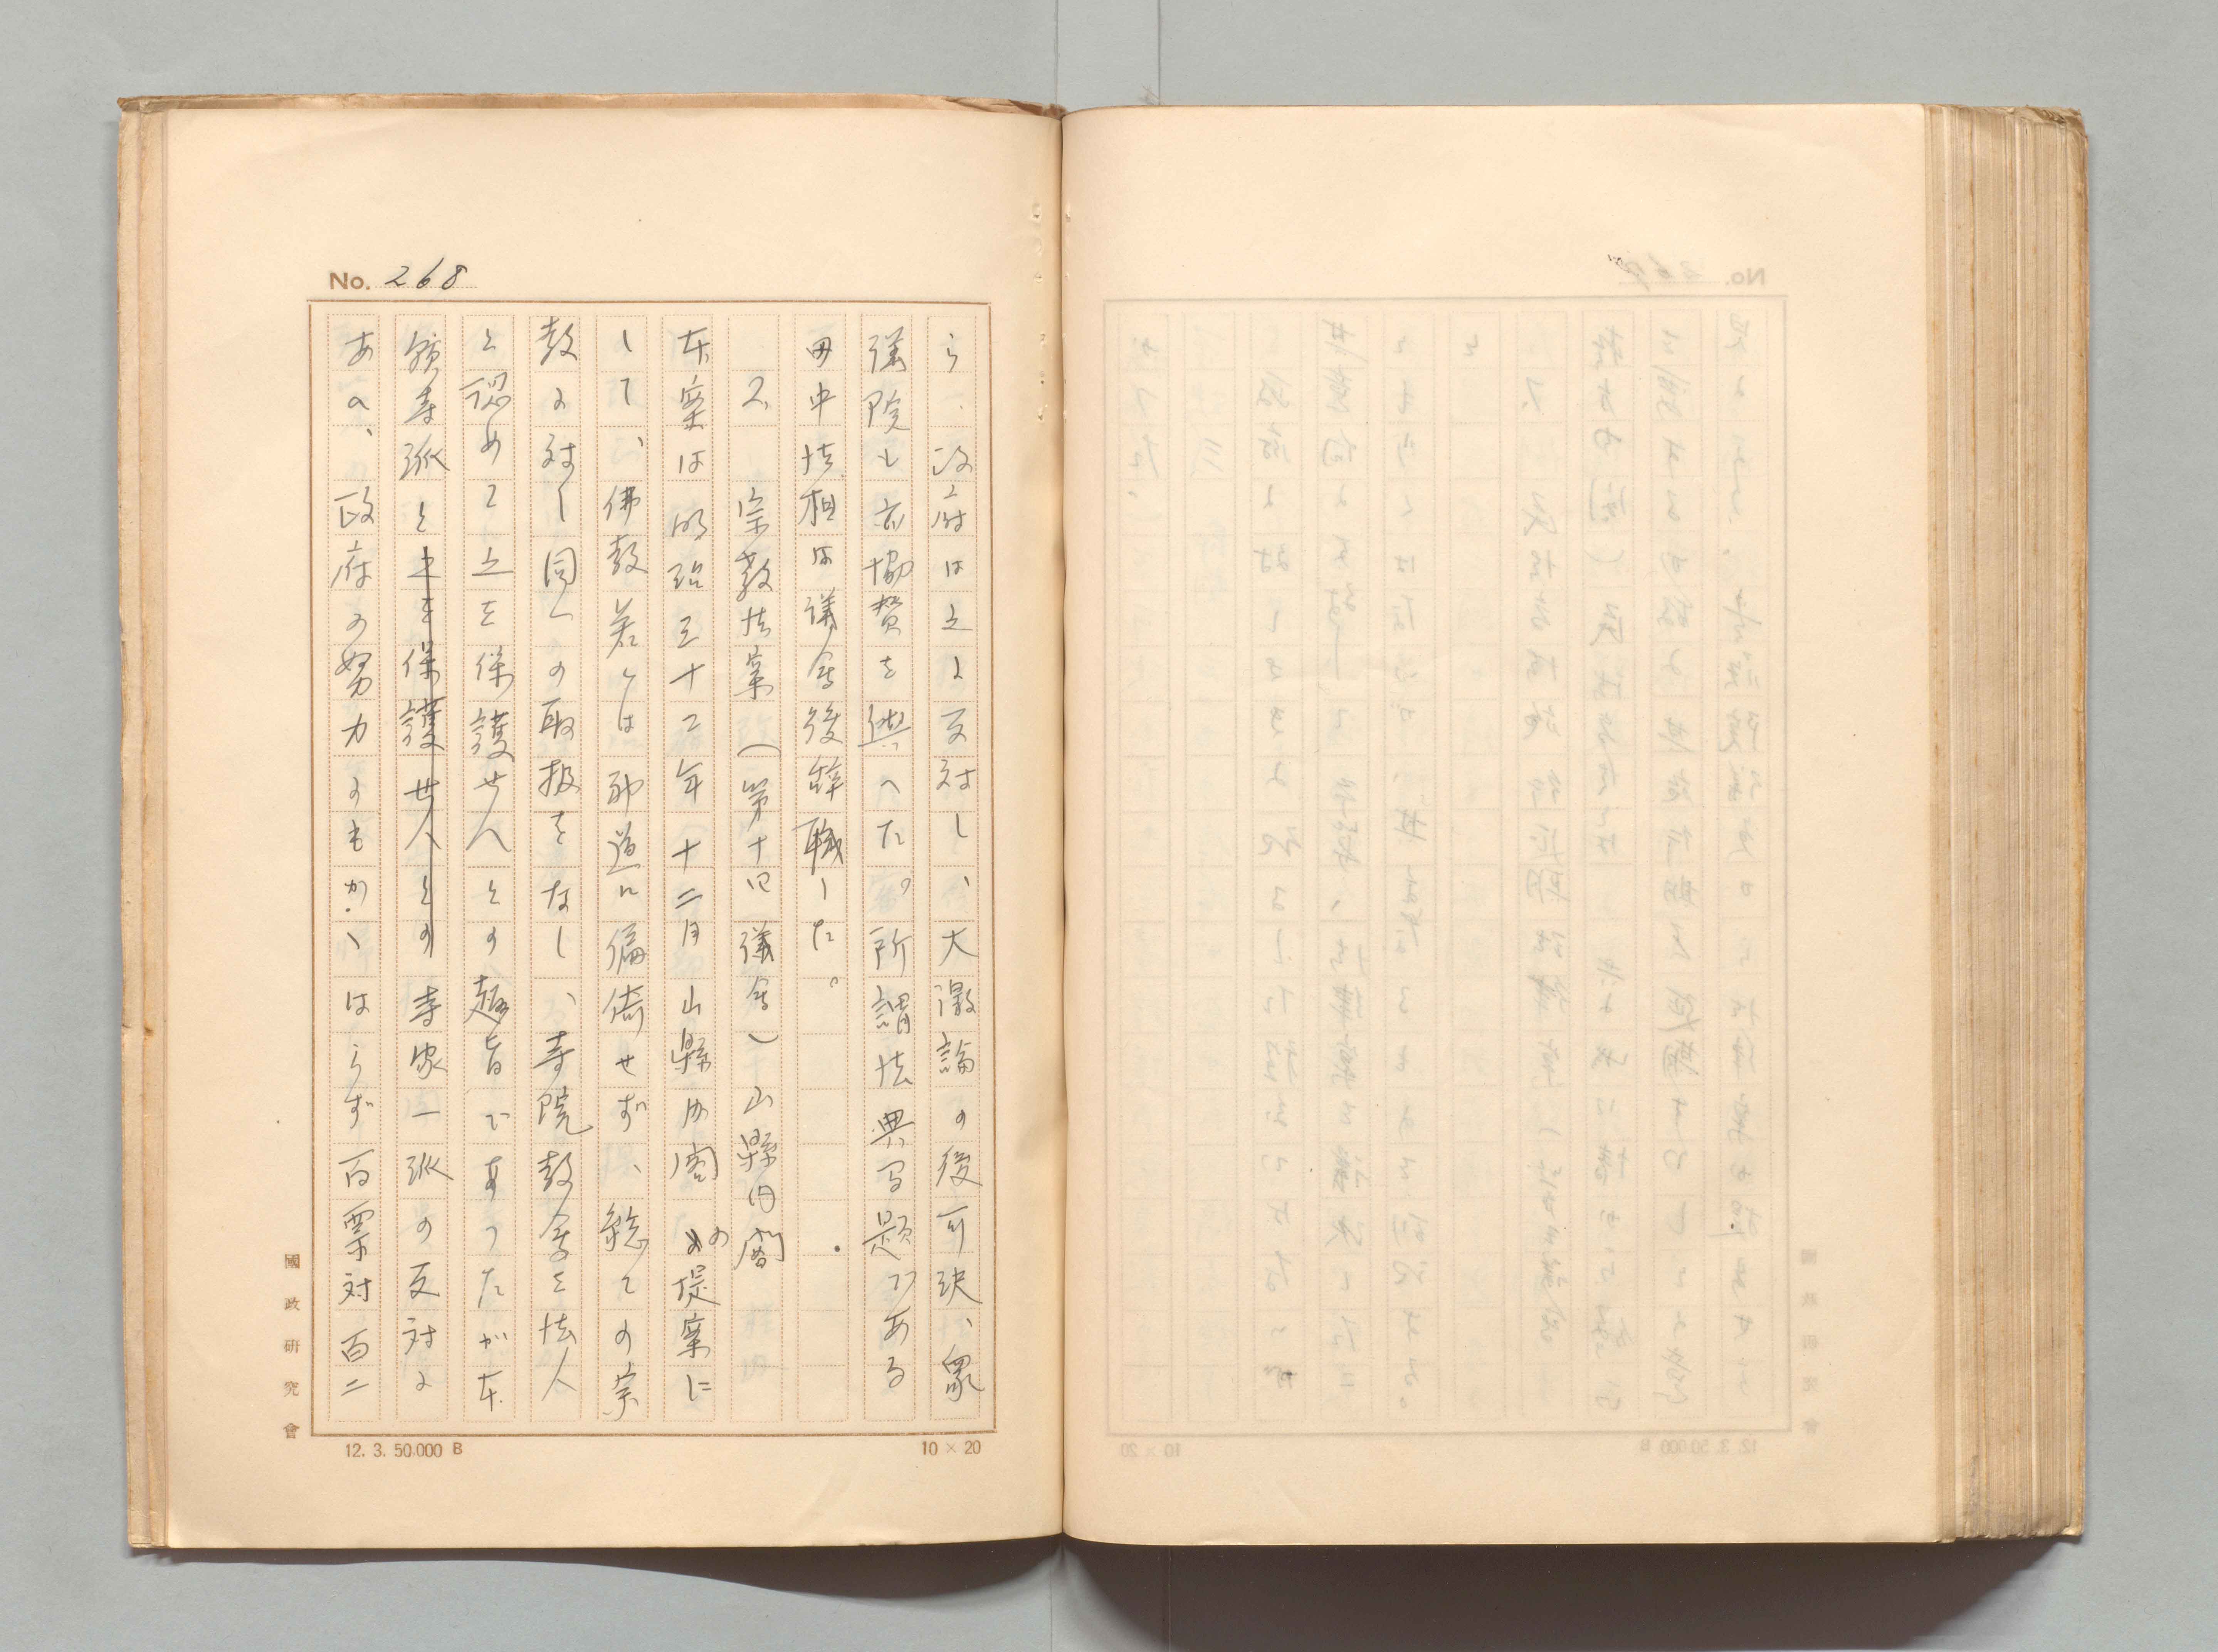 No. 268
ら、政府は之に反対し、大激論の後可決、衆
議院も亦協賛を與へた。所謂法典問題である
田中法相は議会後辞職した。
2、宗教法案(第十四議会)山縣内閣
本案は明治三十二年十二月山縣内閣の提案に
して、佛教若くは神道に偏倚せず、総ての宗
教に対し同一の取扱をなし、寺院教会を法人
と認めて之を保護せんとの趣旨であつたが本
願寺派と之を保護せんとの寺家一派の反対に
あひ、政府の努力にもかゝはらず百票対百二
國政研究會
12. 3. 50.000 B
10 × 20